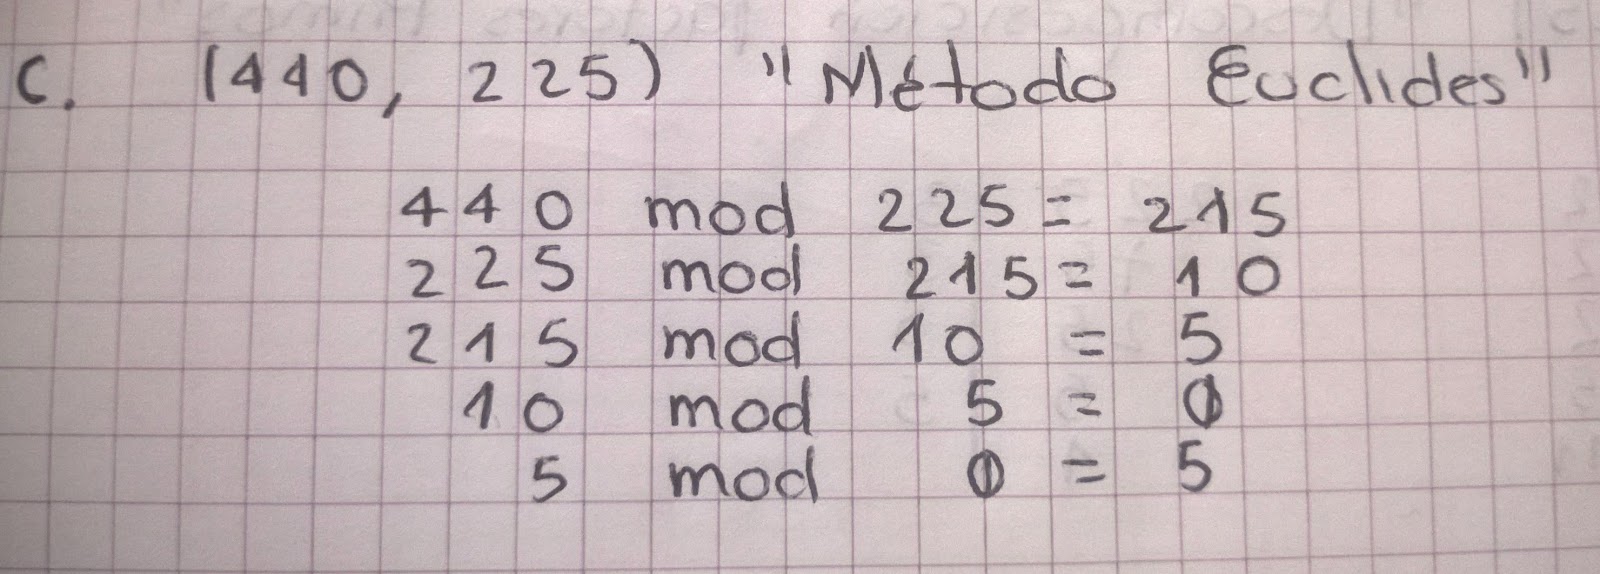 c. (440, 225) "Método Euclides"
440 mod 225 = 215
225 mod 215 = 10
215 mod 10 = 5
10 mod 5 = 0
5 mod 0 = 5